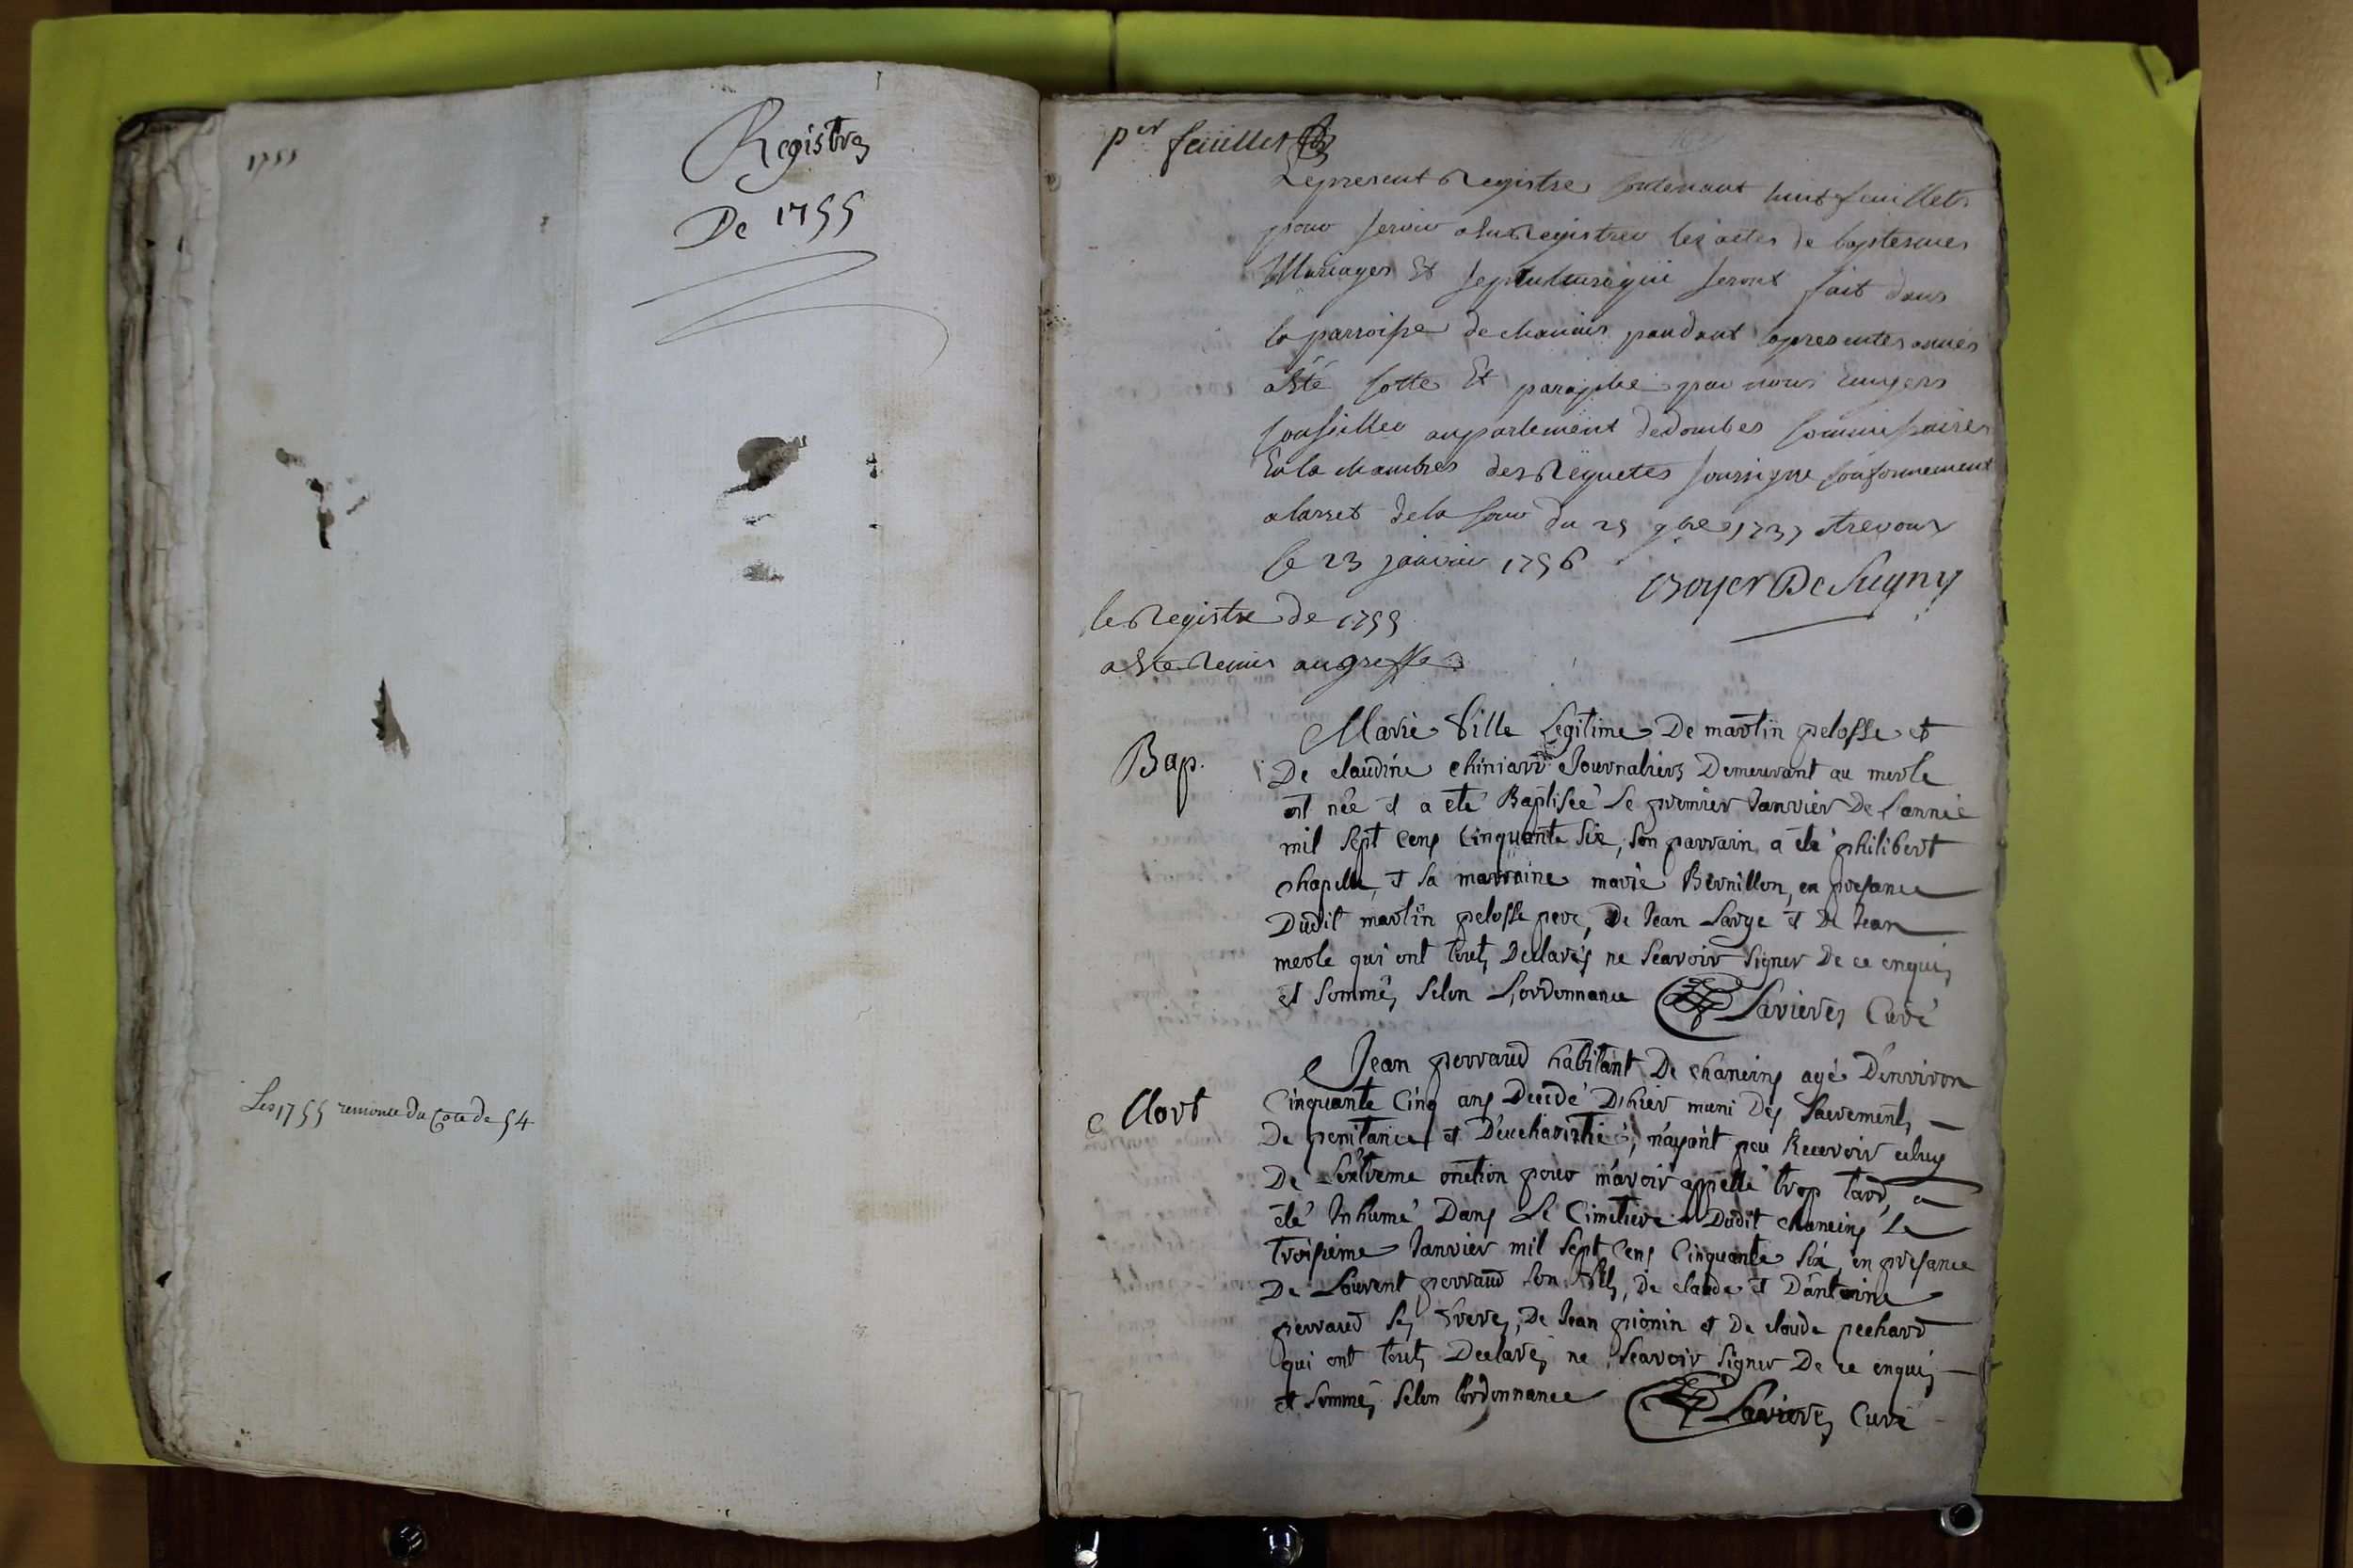 1755
Registre
De 1755
Les 1755 remonte du Cote de 54
per feüillet
Le present Registre contenant huit feuillets
pour servir a enregistrer les actes de baptesmes
Mariages Et sepultures qui seront fait dans
la parroisse de chanins pandant la presentes année
a Eté cotte Et paraphé par nous
Conseiller au parlement de dombes Commissaires
En la chambres des Requetes soussigne conformement
a larret de la Cour du 25 9bre 1737 a trevoux
le 23 janvier 1756
Boyer De Sugny
le Registre de 1755
a Eté Remis au greffe
Bap.
Marie fille Legitime De martin pelosse et
De claudine chiniard Journaliers Demeurant au merle
est née et a eté Baptisée Le premier Janvier De L'année
mil sept cens cinquante six, son parrain a été philibert
chapelle, et sa marraine marie Bernillon, en presance
Dudit martin pelosse pere, De Jean Large et De Jean
merle qui ont touts Declarés ne scavoir signer De ce enquis
et sommés selon L'ordonnance Lavieres Curé
Mort
Jean perraud habitant De chaneins agé D'environ
Cinquante Cinq ans Decedé D'hier muni Des Sacrements
De penitance et D'eucharistie, n'ayant peu Recevoir celuy
De L'extreme onction pour m'avoir appellé trop tard, a
été Inhumé Dans Le Cimetiere Dudit chaneins Le
troisieme Janvier mil sept cens cinquante six, en presance
De Laurent perraud son fils, de claude et D'antoine
perraud ses freres, De Jean pionin et De claude pechard
qui ont touts Declarés ne scavoir signer De ce enquis
et sommés selon l'ordonnance Lavieres Curé